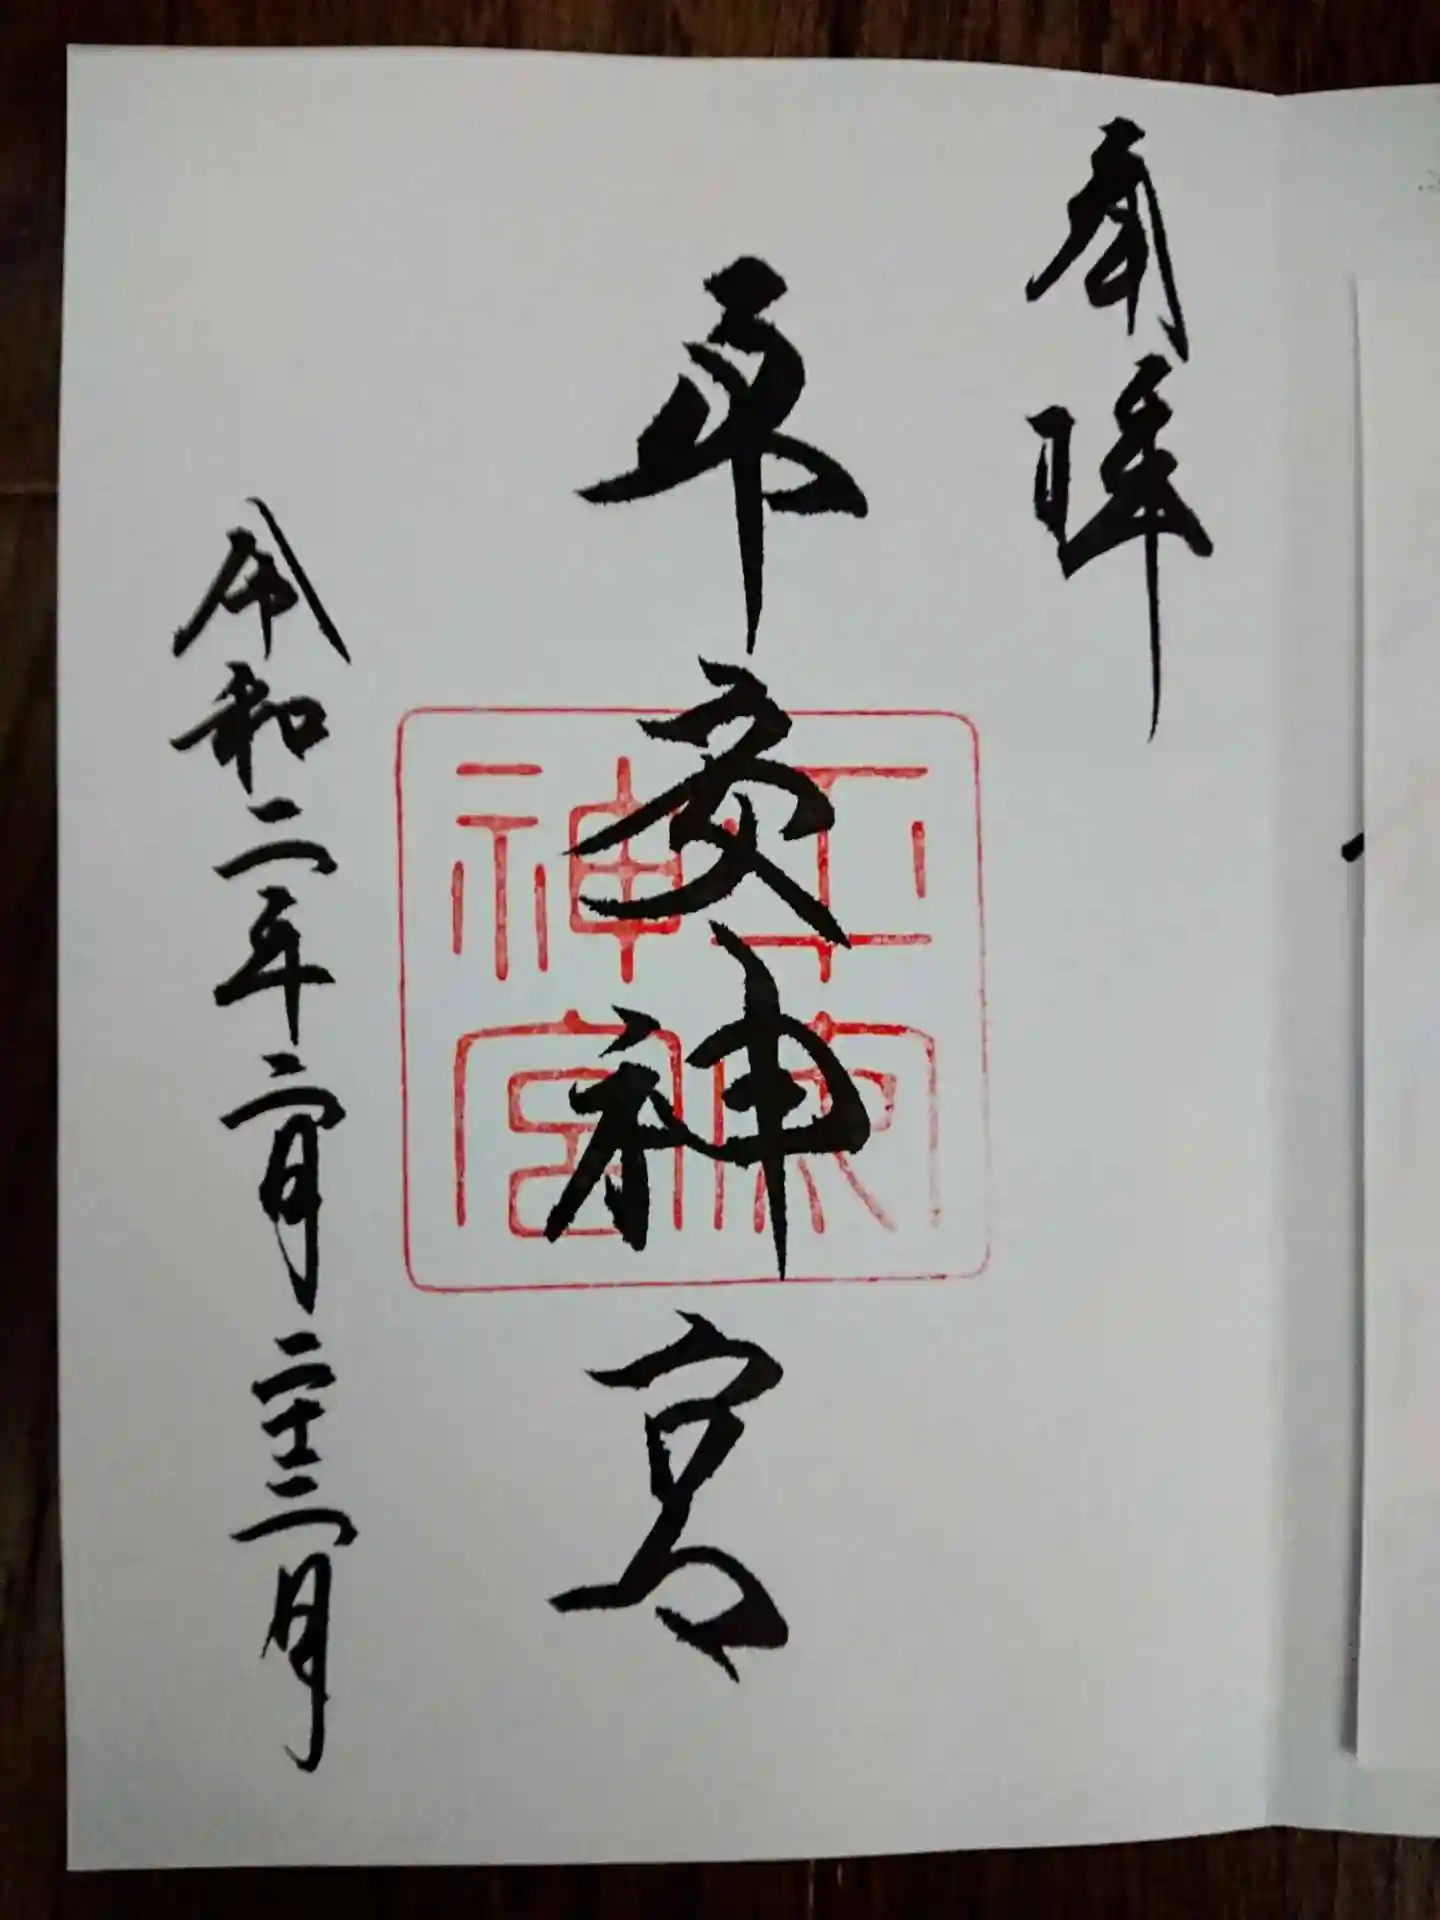 奉拝
平安神宮
平安神宮
令和二年二月二十二日